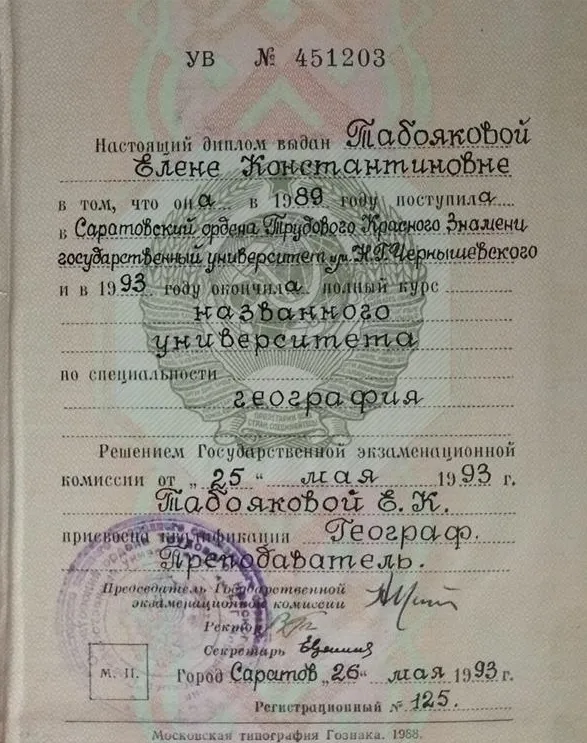 УВ № 451203
Настоящий диплом выдан Табояковой
Елене Константиновне
в том, что она в 1989 году поступила
в Саратовский ордена Трудового Красного Знамени
государственный университет им. Н.Г. Чернышевского
и в 1993 году окончила полный курс
названного
университета
по специальности
география
Решением Государственной экзаменационной
комиссии от „25" мая 1993 г.
Табояковой Е. К.
присвоена квалификация Географ.
Преподаватель.
Председатель Государственной
экзаменационной комиссии
Ректор
Секретарь
М. П.
Город Саратов „26" мая 1993 г.
Регистрационный № 125.
Московская типография Гознака. 1988.